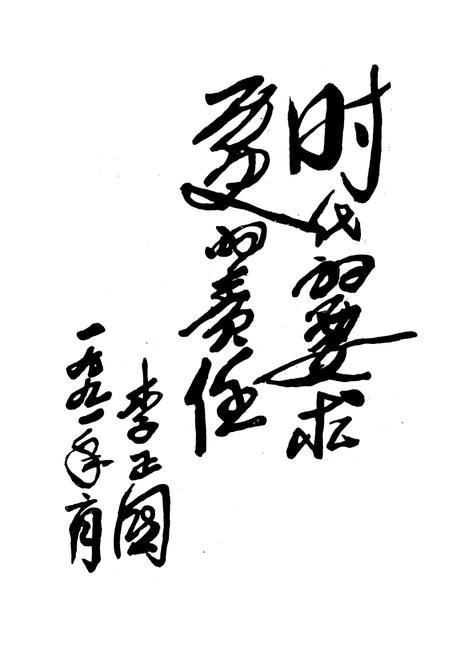 时代的要求
历史的责任
李正国
一九九一年六月